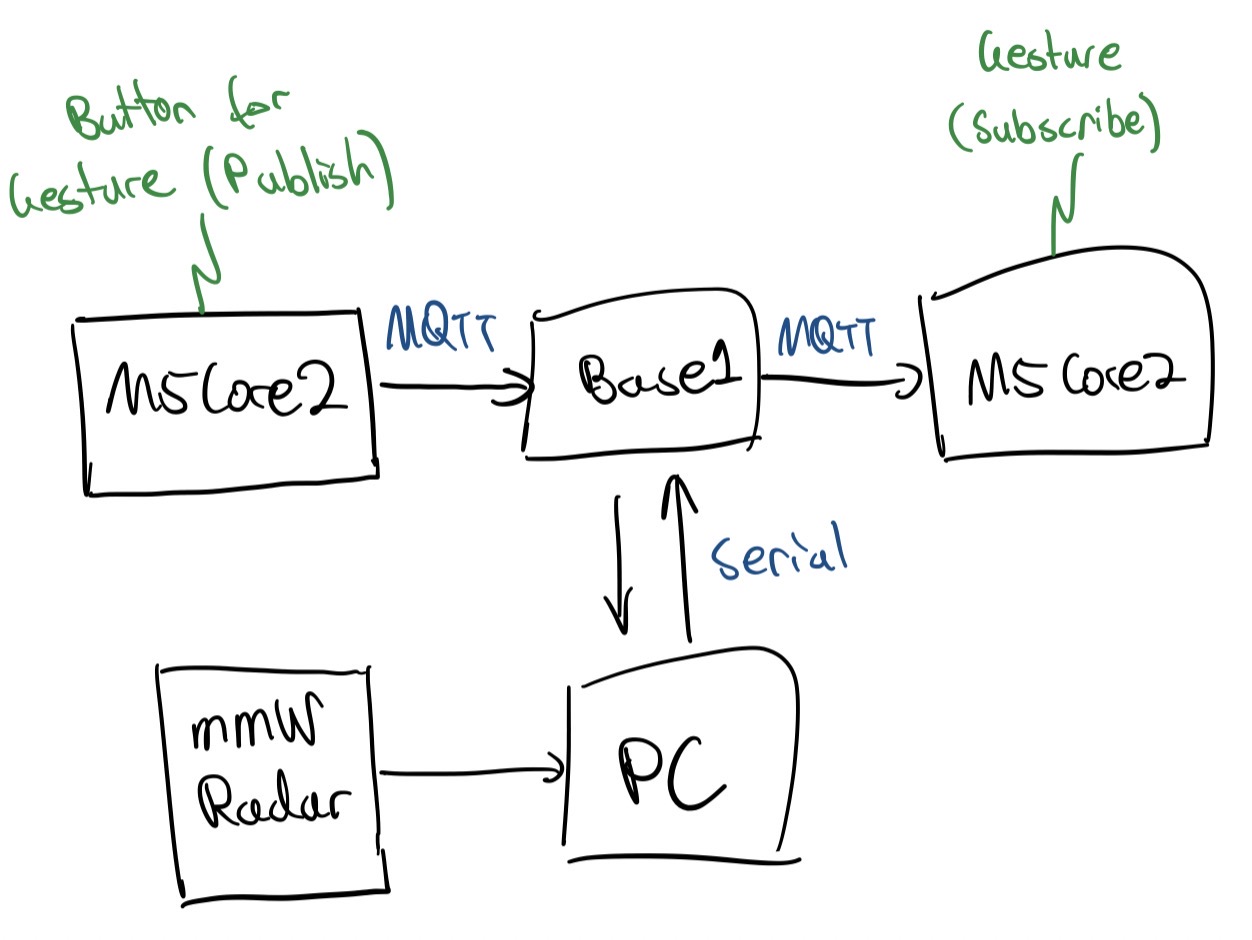 Button for
Gesture (Publish)
Gesture
(Subscribe)
M5Core2
MQTT
Base1
MQTT
M5Core2
Serial
mmW
Radar
PC